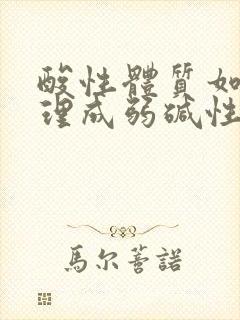 酸性體質如
理成弱碱性
馬尔薈諾